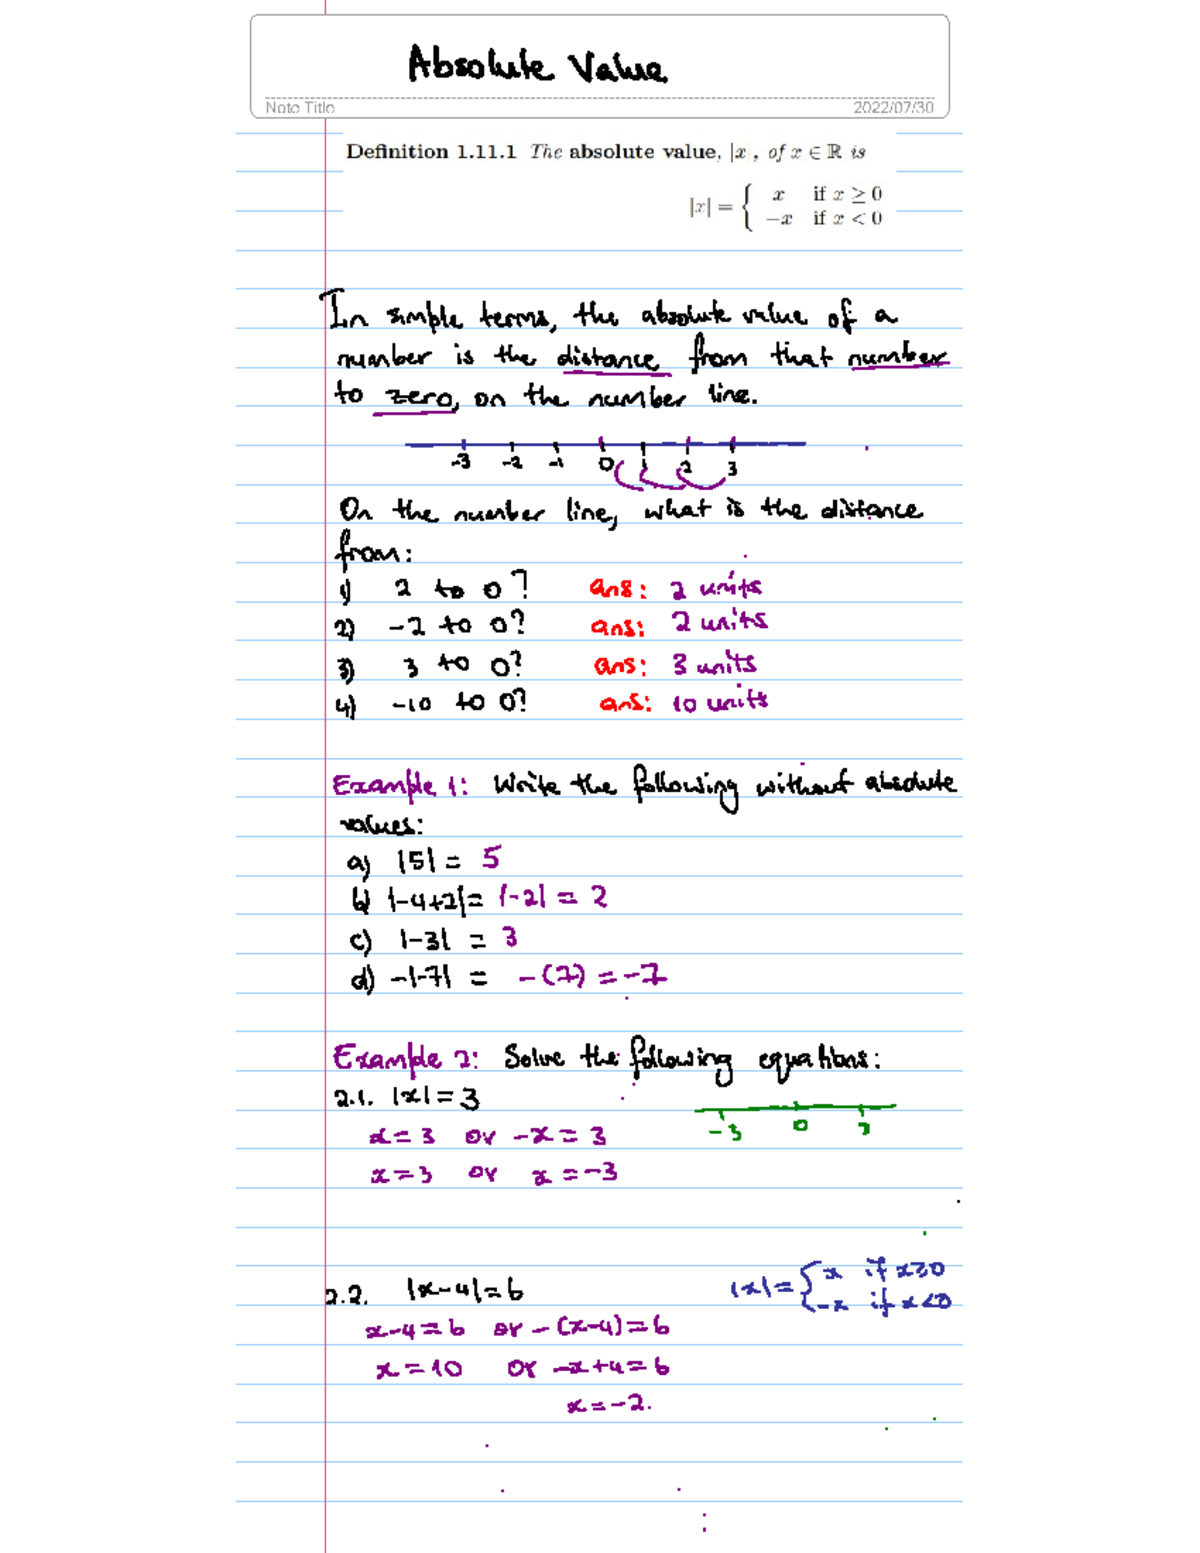 Absolute Value
Note Title
2022/07/30
Definition 1.11.1 The absolute value, |x|, of x ∈ ℝ is
|x| = { x if x ≥ 0
-x if x < 0
In simple terms, the absolute value of a
number is the distance from that number
to zero, on the number line.
-3 -2 -1 0 1 2 3
On the number line, what is the distance
from:
1) 2 to 0? ans: 2 units
2) -2 to 0? ans: 2 units
3) 3 to 0? ans: 3 units
4) -10 to 0? ans: 10 units
Example 1: Write the following without absolute
values:
a) |5| = 5
b) |-4+2| = |-2| = 2
c) |-3| = 3
d) -|-7| = -(7) = -7
Example 2: Solve the following equations:
2.1. |x| = 3
-3 0 3
x = 3 or -x = 3
x = 3 or x = -3
|x| = { x if x≥0
-x if x<0
2.2. |x-4| = 6
x-4 = 6 or -(x-4) = 6
x = 10 or -x+4 = 6
x = -2.